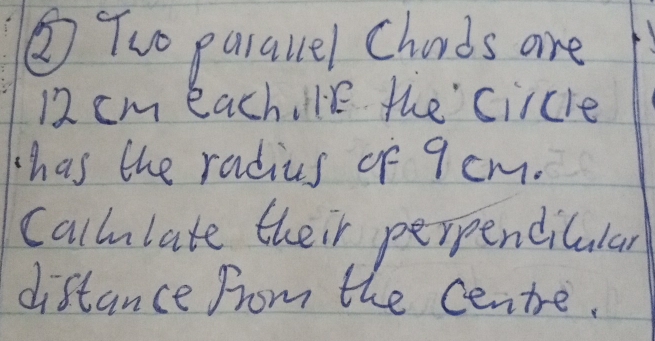 ② Two parallel Chords are
12 cm each. IF the circle
has the radius of 9 cm.
Calculate their perpendicular
distance From the Centre.